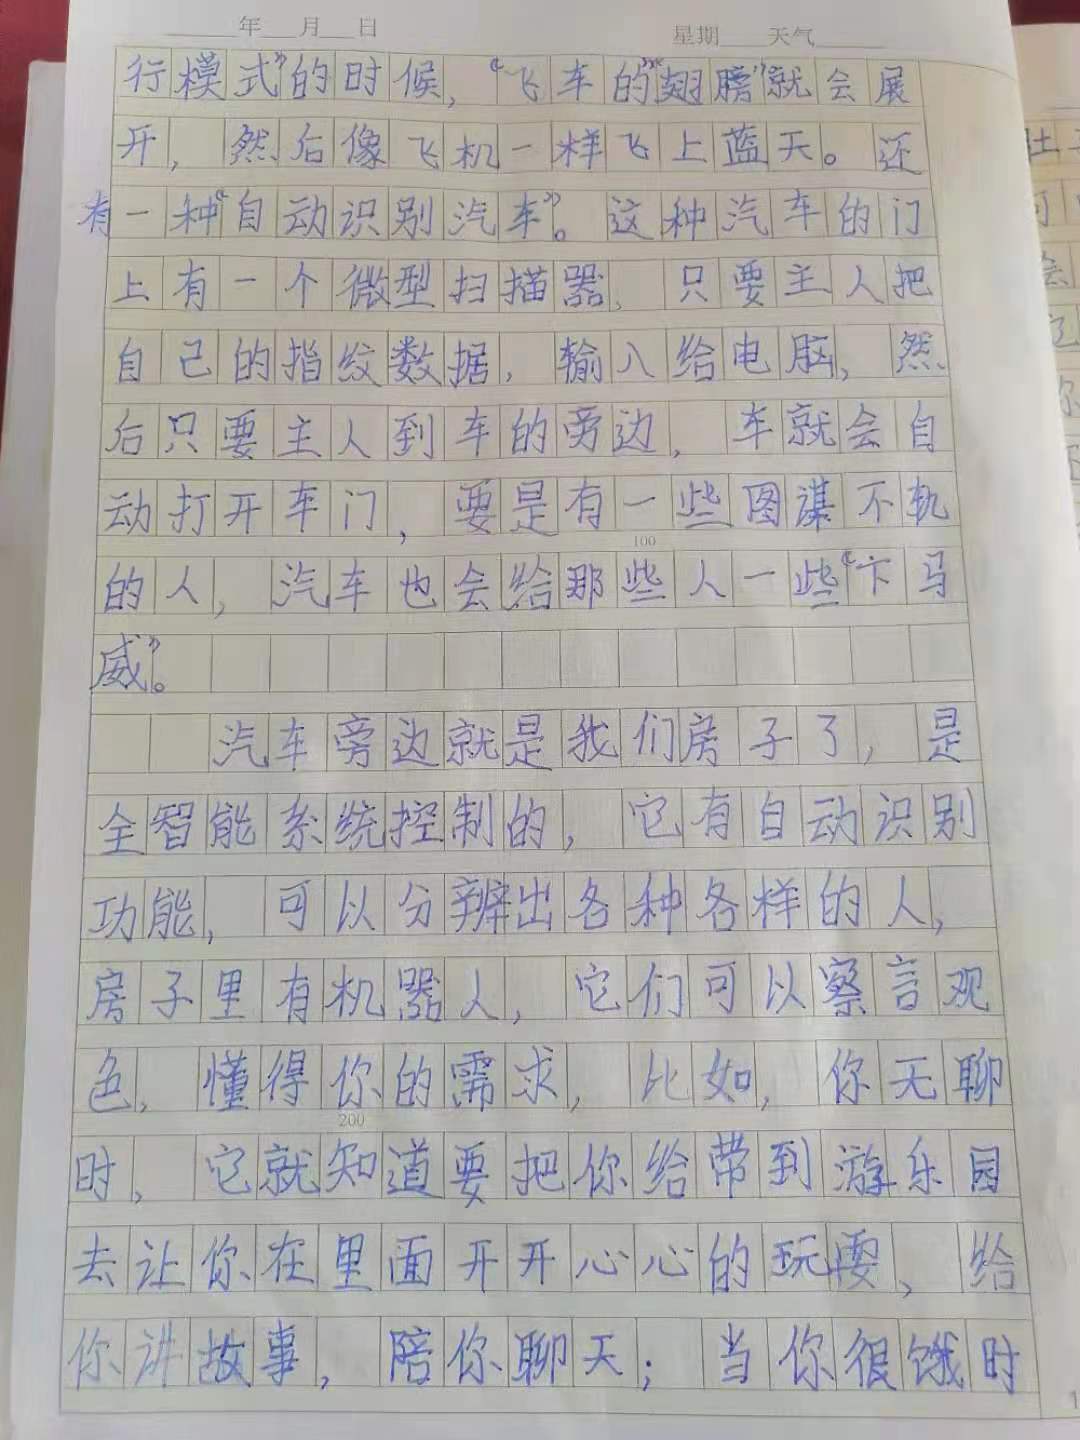 ____年__月__日 星期___天气_____
行模式”的时候，“飞车的”“翅膀”就会展
开，然后像飞机一样飞上蓝天。还
有一种“自动识别汽车”。这种汽车的门
上有一个微型扫描器，只要主人把
自己的指纹数据，输入给电脑，然
后只要主人到车的旁边，车就会自
动打开车门，要是有一些图谋不轨
100
的人，汽车也会给那些人一些“下马
威”。
汽车旁边就是我们房子了，是
全智能系统控制的，它有自动识别
功能，可以分辨出各种各样的人，
房子里有机器人，它们可以察言观
色，懂得你的需求，比如，你无聊
200
时，它就知道要把你给带到游乐园
去让你在里面开开心心的玩耍、给
你讲故事，陪你聊天；当你很饿时